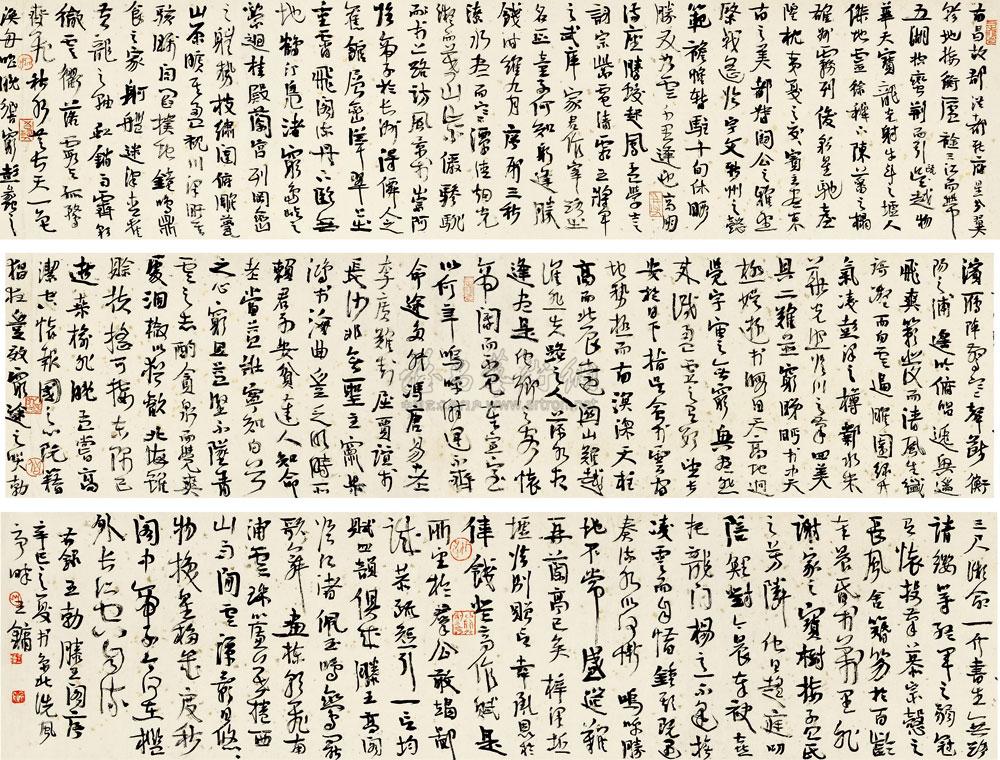 南昌故郡洪都新府星分翼
軫地接衡廬襟三江而帶
五湖控蠻荊而引甌越物
華天寶龍光射牛斗之墟人
傑地靈徐稚下陳蕃之榻
雄州霧列俊彩星馳臺
隍枕夷夏之交賓主盡東
南之美都督閻公之雅望
棨戟遙臨宇文新州之懿
範襜帷暫駐十旬休暇
勝友如雲千里逢迎高朋
滿座騰蛟起鳳孟學士之
詞宗紫電清霜王將軍
之武庫家君作宰路出
名區童子何知躬逢勝
餞時維九月序屬三秋
潦水盡而寒潭清煙光
凝而暮山紫儼驂騑
於上路訪風景於崇阿
臨帝子於長洲得仙人之
舊館層巒聳翠上出
重霄飛閣流丹下臨無
地鶴汀鳧渚窮島嶼之
縈迴桂殿蘭宮列岡巒
之體勢披繡闥俯雕甍
山原曠其盈視川澤盱其
駭矚閭閻撲地鐘鳴鼎
食之家舸艦迷津青雀
黃龍之舳虹銷雨霽彩
徹雲衢落霞與孤鶩
齊飛秋水共長天一色
漁舟唱晚響窮彭蠡之
濱雁陣驚寒聲斷衡
陽之浦遙吟俯暢逸興遄
飛爽籟發而清風生纖
歌凝而白雲遏睢園綠竹
氣凌彭澤之樽鄴水朱
華光照臨川之筆四美
具二難並窮睇眄於中天
極娛遊於暇日天高地迥
覺宇宙之無窮興盡悲
來識盈虛之有數望長
安於日下指吳會於雲間
地勢極而南溟深天柱
高而北辰遠關山難越
誰悲失路之人萍水相
逢盡是他鄉之客懷
帝閽而不見奉宣室
以何年嗚呼時運不齊
命途多舛馮唐易老
李廣難封屈賈誼於
長沙非無聖主竄梁
鴻於海曲豈乏明時所
賴君子安貧達人知命
老當益壯寧知白首
之心窮且益堅不墜青
雲之志酌貪泉而覺爽
處涸轍以猶歡北海雖
賒扶搖可接東隅已
逝桑榆非晚孟嘗高
潔空懷報國之心阮籍
猖狂豈效窮途之哭勃
三尺微命一介書生無路
請纓等終軍之弱冠
有懷投筆慕宗愨之
長風舍簪笏於百齡
奉晨昏於萬里非
謝家之寶樹接孟氏
之芳鄰他日趨庭叨
陪鯉對今晨奉袂喜
托龍門楊意不逢撫
凌雲而自惜鍾期既遇
奏流水以何慚嗚呼勝
地不常盛筵難
再蘭亭已矣梓澤丘
墟臨別贈言幸承恩於
偉餞登高作賦是
所望於群公敢竭鄙
誠恭疏短引一言均
賦四韻俱成滕王高閣
臨江渚佩玉鳴鸞罷
歌舞畫棟朝飛南
浦雲珠簾暮捲西
山雨閒雲潭影日悠悠
物換星移幾度秋
閣中帝子今何在檻
外長江空自流
右錄王勃滕王閣序
辛巳之夏書於京北浩風
亭畔王鏞